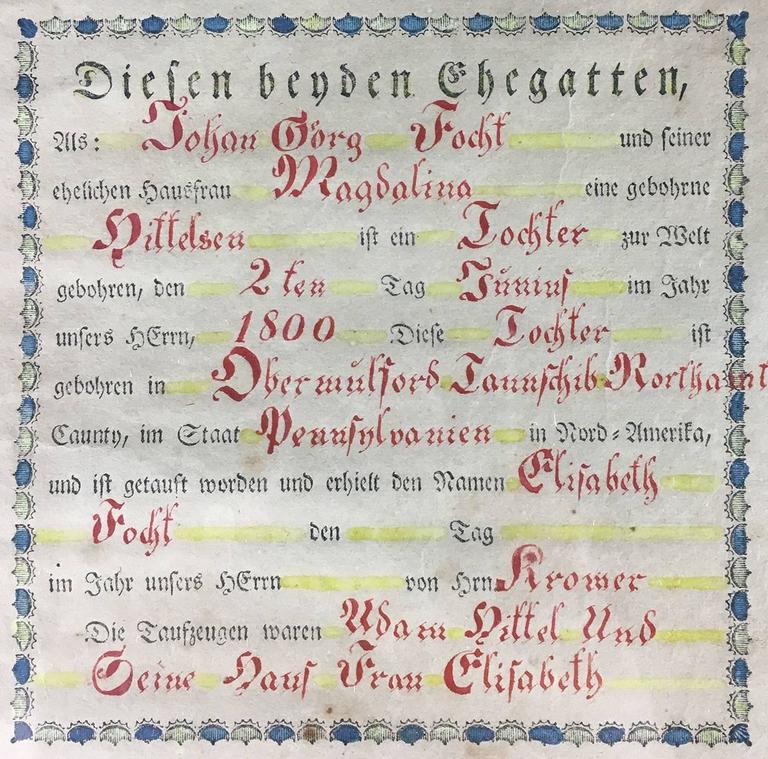 Diesen beyden Ehegatten,
Als: Johan Görg Focht und seiner
ehelichen Hausfrau Magdalina eine gebohrne
Hittelsen ist ein Tochter zur Welt
gebohren, den 2ten Tag Junius im Jahr
unsers HErrn, 1800 Diese Tochter ist
gebohren in Obermulford Taunschib Northamt
Caunty, im Staat Pennsylvanien in Nord=Amerika,
und ist getauft worden und erhielt den Namen Elisabeth
Focht den Tag
im Jahr unsers HErrn von Hrn. Kromer
Die Taufzeugen waren Adam Hittel Und
Seine Haus Frau Elisabeth